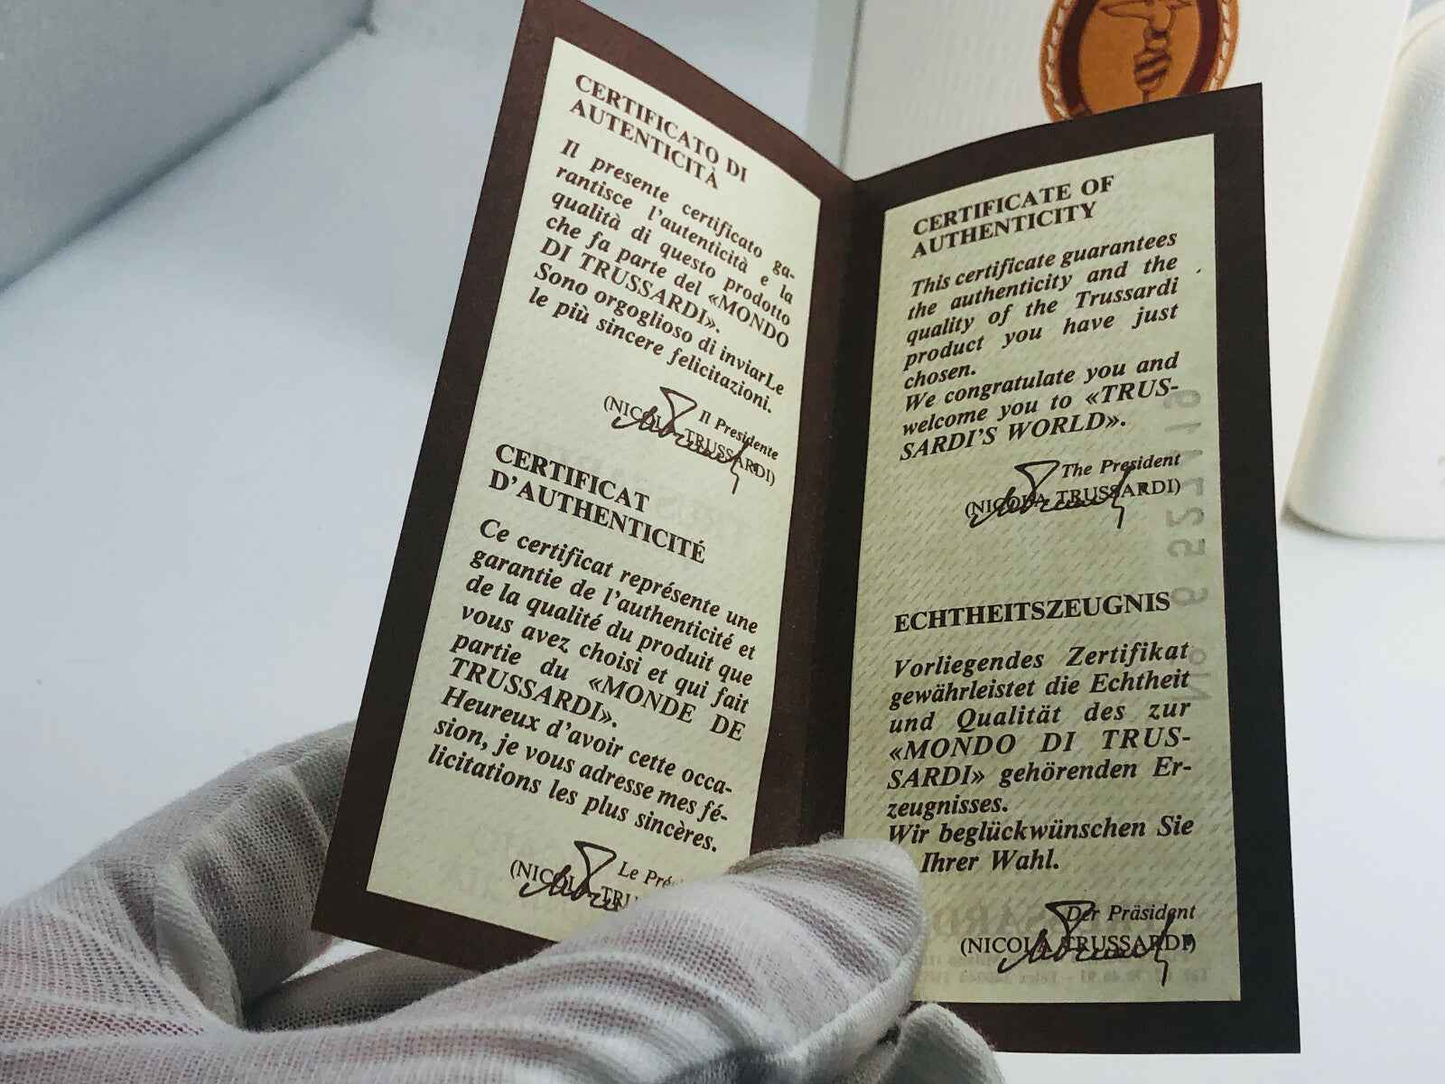 CERTIFICATO DI
AUTENTICITÀ
Il presente certificato ga-
rantisce l'autenticità e la
qualità di questo prodotto
che fa parte del «MONDO
DI TRUSSARDI».
Sono orgoglioso di inviarLe
le più sincere felicitazioni.
Il Presidente
(NICOLA TRUSSARDI)
CERTIFICAT
D'AUTHENTICITÉ
Ce certificat représente une
garantie de l'authenticité et
de la qualité du produit que
vous avez choisi et qui fait
partie du «MONDE DE
TRUSSARDI».
Heureux d'avoir cette occa-
sion, je vous adresse mes fé-
licitations les plus sincères.
Le Pré
(NICOLA TRU
CERTIFICATE OF
AUTHENTICITY
This certificate guarantees
the authenticity and the
quality of the Trussardi
product you have just
chosen.
We congratulate you and
welcome you to «TRUS-
SARDI'S WORLD».
The President
(NICOLA TRUSSARDI)
ECHTHEITSZEUGNIS
Vorliegendes Zertifikat
gewährleistet die Echtheit
und Qualität des zur
«MONDO DI TRUS-
SARDI» gehörenden Er-
zeugnisses.
Wir beglückwünschen Sie
Ihrer Wahl.
Der Präsident
(NICOLA TRUSSARDI)